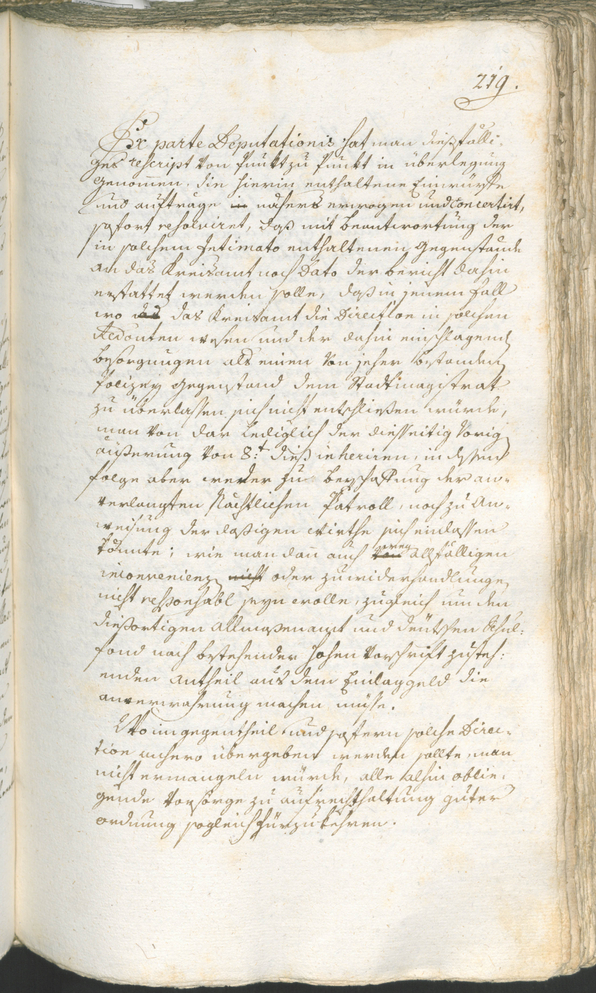 219.
Ex parte Deputationis hat man dießfälli-
ges rescript von Punkt zu Punkt in überlegung
genommen. die hierin enthaltene Einwürfe
und aufträge näher erwogen und concertirt,
sofort resolviret, daß mit beantwortung der
in solchem Intimato enthaltenen Gegenstände
an das Kreisamt noch dato der bericht dahin
erstattet werden solle, daß in jenem fall
wo das Kreisamt die Direction in solchen
Redouten wesen und der dahin einschlagend
besorgungen als einen von jeher bestanden
Polizey gegenstand dem Stadtmagistrat
zu überlassen sich nicht entschließen würde,
man von dar lediglich der diesseitig vorig
äußerung von 8:t dieß inherieren, in dessen
folge aber weder zu beyschaffung der an-
verlangten Nächtlichen Patroll, noch zu An-
weisung der dasigen Wirthe sich einlassen
könnte; wie man dan auch allfälligen
inconvenienz nicht oder zuwiderhandlunge
nicht responsabl seyn wolle, zugleich um den
dießortigen Allmosenamt und deutschen Schul-
fond nach bestehender hohen Vorschrift zusteh-
enden Antheil aus dem Einlaggeld die
anverwahrung machen müße.
Wo im gegentheil und sofern solche Direc-
tion anhero übergeben werden sollte, man
nicht ermangeln würde, alle alhin oblie-
gende Vorsorge zu aufrechthaltung guter
ordnung sogleich fürzukehren.